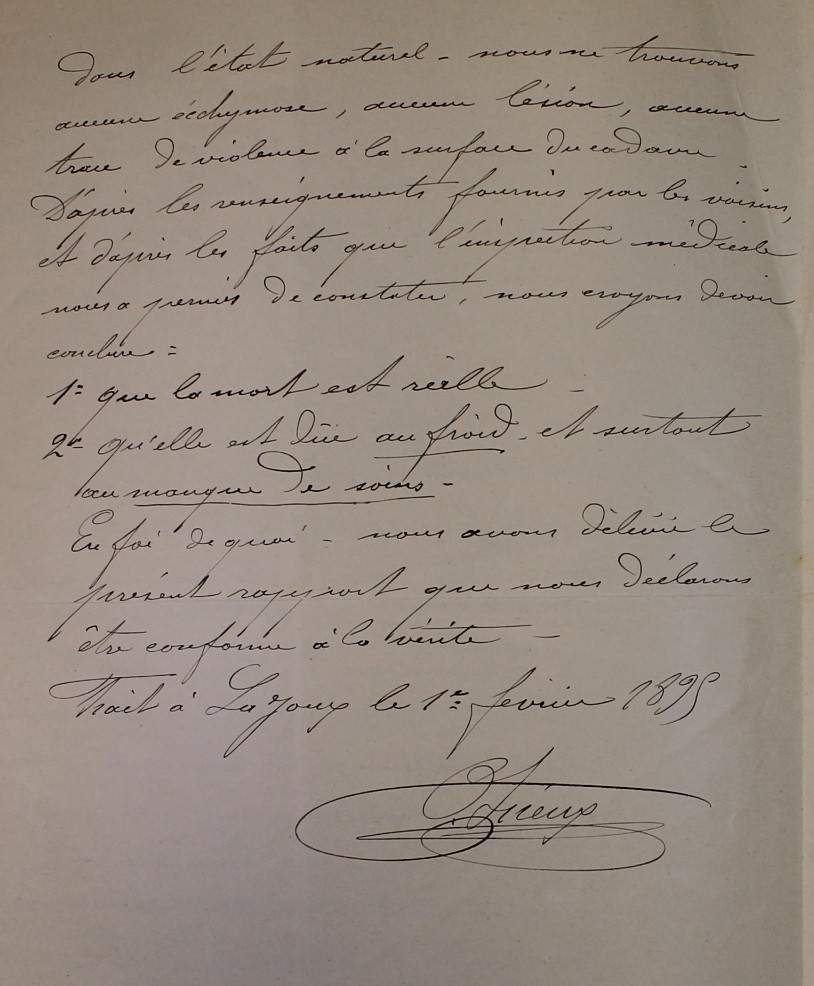 dans l'état naturel - nous ne trouvons
aucune écchymose, aucune lésion, aucune
trace de violence à la surface du cadavre -
D'après les renseignements fournis par les voisins,
et d'après les faits que l'inspection médicale
nous a permis de constater, nous croyons devoir
conclure =
1º que la mort est réelle -
2º qu'elle est düe au froid - et surtout
au manque de soins -
En foi de quoi - nous avons délivré le
présent rapport que nous déclarons
être conforme à la vérité -
Fait à La Joux le 1er février 1895